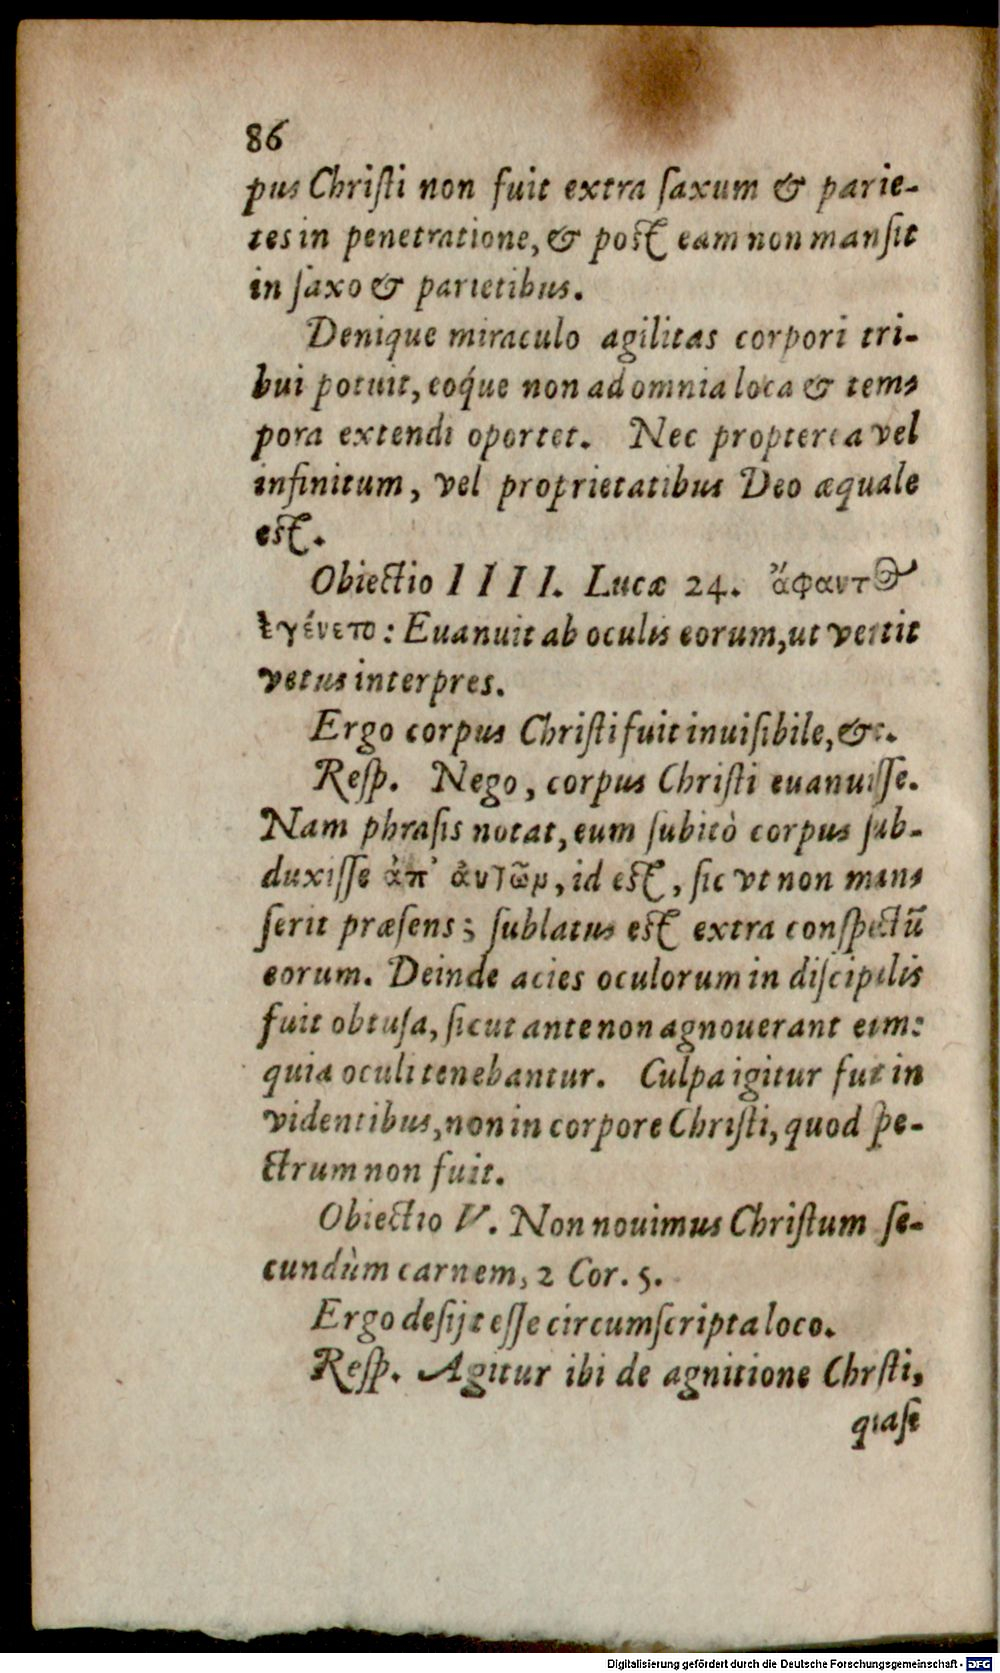 86
pus Christi non fuit extra saxum & parie-
tes in penetratione, & post eam non mansit
in saxo & parietibus.
Denique miraculo agilitas corpori tri-
bui potuit, eoq́ue non ad omnia loca & tem-
pora extendi oportet. Nec propterea vel
infinitum, vel proprietatibus Deo æquale
est.
Obiectio IIII. Lucæ 24. ἄφαντος
ἐγένετο: Euanuit ab oculis eorum, ut vertit
vetus interpres.
Ergo corpus Christi fuit inuisibile, &c.
Resp. Nego, corpus Christi euanuisse.
Nam phrasis notat, eum subitò corpus sub-
duxisse ἀπ' ἀυτῶν, id est, sic vt non man-
serit præsens; sublatus est extra conspectũ
eorum. Deinde acies oculorum in discipulis
fuit obtusa, sicut ante non agnouerant eum:
quia oculi tenebantur. Culpa igitur fuit in
videntibus, non in corpore Christi, quod spe-
ctrum non fuit.
Obiectio V. Non nouimus Christum se-
cundùm carnem, 2 Cor. 5.
Ergo desijt esse circumscripta loco.
Resp. Agitur ibi de agnitione Chrsti,
quase
Digitalisierung gefördert durch die Deutsche Forschungsgemeinschaft - DFG